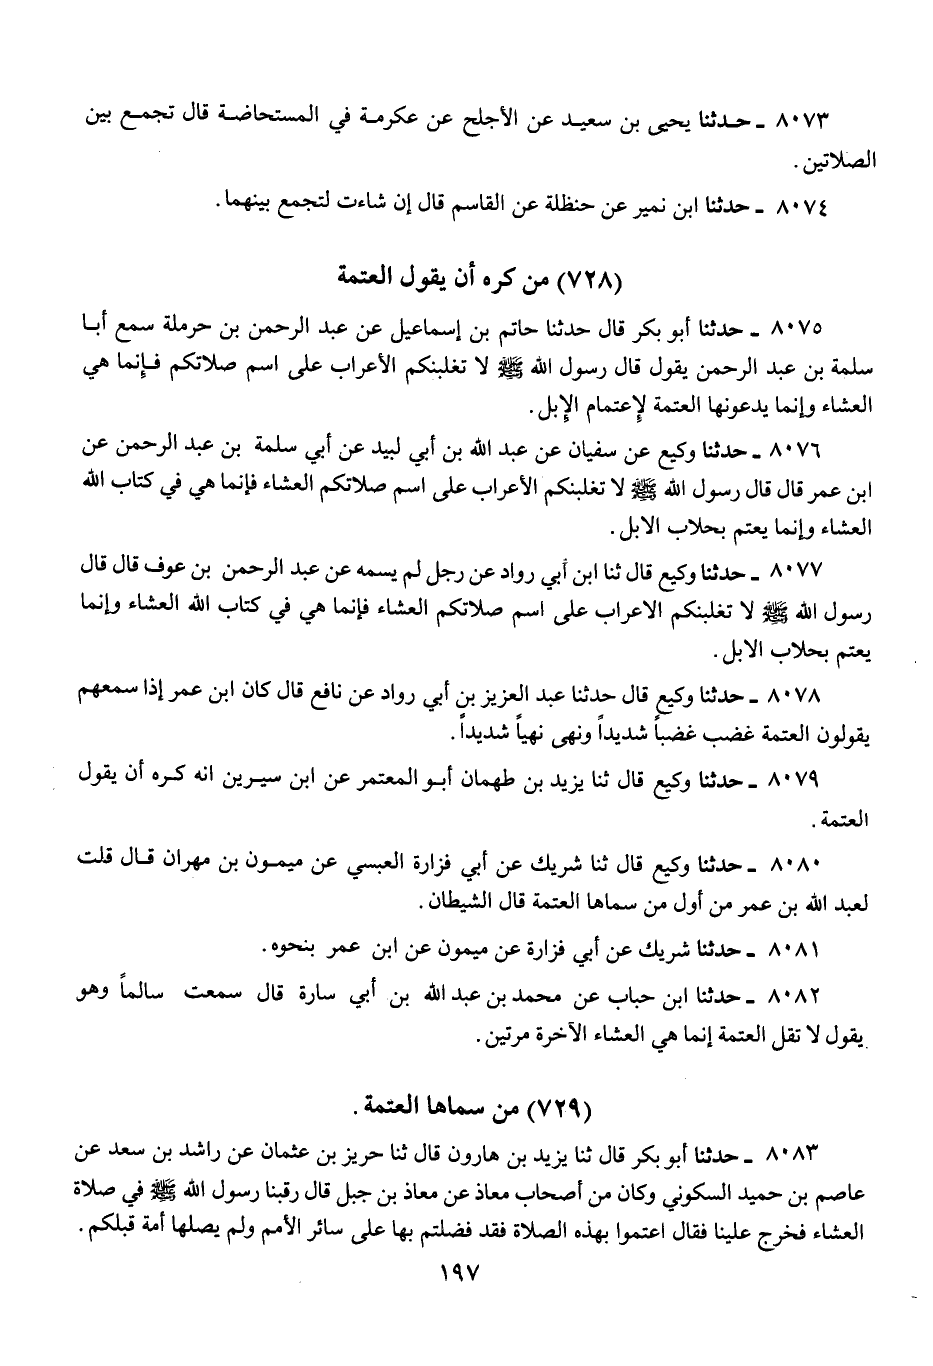 ٨٠٧٣ ـ حدثنا يحيى بن سعيد عن الأجلح عن عكرمة في المستحاضة قال تجمع بين
الصلاتين .
٨٠٧٤ ـ حدثنا ابن نمير عن حنظلة عن القاسم قال إن شاءت لتجمع بينهما.
(٧٢٨) من كره أن يقول العتمة
٨٠٧٥ ـ حدثنا أبو بكر قال حدثنا حاتم بن إسماعيل عن عبد الرحمن بن حرملة سمع أبا
سلمة بن عبد الرحمن يقول قال رسول الله ﷺ لا تغلبنكم الأعراب على اسم صلاتكم فإنما هي
العشاء وإنما يدعونها العتمة لإعتمام الإبل.
٨٠٧٦ ـ حدثنا وكيع عن سفيان عن عبد الله بن أبي لبيد عن أبي سلمة بن عبد الرحمن عن
ابن عمر قال قال رسول الله ﷺ لا تغلبنكم الأعراب على اسم صلاتكم العشاء فإنما هي في كتاب الله
العشاء وإنما يعتم بحلاب الابل .
٨٠٧٧ ـ حدثنا وكيع قال ثنا ابن أبي رواد عن رجل لم يسمه عن عبد الرحمن بن عوف قال قال
رسول الله ﷺ لا تغلبنكم الاعراب على اسم صلاتكم العشاء فإنما هي في كتاب الله العشاء وإنما
يعتم بحلاب الابل .
٨٠٧٨ ـ حدثنا وكيع قال حدثنا عبد العزيز بن أبي رواد عن نافع قال كان ابن عمر إذا سمعهم
يقولون العتمة غضب غضباً شديداً ونهى نهياً شديداً.
٨٠٧٩ ـ حدثنا وكيع قال ثنا يزيد بن طهمان أبو المعتمر عن ابن سيرين انه كره أن يقول
العتمة .
٨٠٨٠ ـ حدثنا وكيع قال ثنا شريك عن أبي فزارة العبسي عن ميمون بن مهران قال قلت
لعبد الله بن عمر من أول من سماها العتمة قال الشيطان .
٨٠٨١ ـ حدثنا شريك عن أبي فزارة عن ميمون عن ابن عمر بنحوه.
٨٠٨٢ ـ حدثنا ابن حباب عن محمد بن عبد الله بن أبي سارة قال سمعت سالماً وهو
يقول لا تقل العتمة إنما هي العشاء الآخرة مرتين.
(٧٢٩) من سماها العتمة .
٨٠٨٣ ـ حدثنا أبو بكر قال ثنا يزيد بن هارون قال ثنا حريز بن عثمان عن راشد بن سعد عن
عاصم بن حميد السكوني وكان من أصحاب معاذ عن معاذ بن جبل قال رقبنا رسول الله ﷺ في صلاة
العشاء فخرج علينا فقال اعتموا بهذه الصلاة فقد فضلتم بها على سائر الأمم ولم يصلها أمة قبلكم .
١٩٧